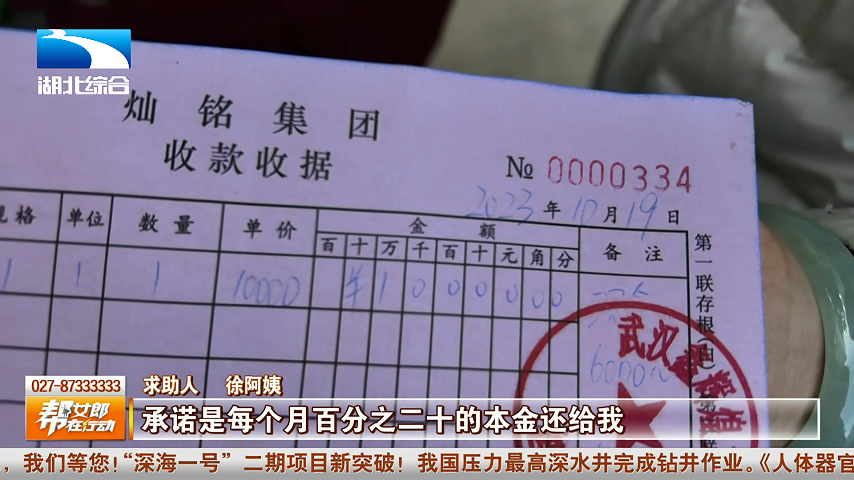 湖北综合
灿铭集团
收款收据
№ 0000334
2023 年 10 月 19 日
规格 单位 数量 单价 金额 备注
百 十 万 千 百 十 元 角 分
1 1 1 10000 ¥ 1 0 0 0 0 0 0
6000
第一联存根(白)
武汉
027-87333333
帮女郎
在行动
求助人 徐阿姨
承诺是每个月百分之二十的本金还给我
，我们等您！“深海一号”二期项目新突破！我国压力最高深水井完成钻井作业。《人体器官